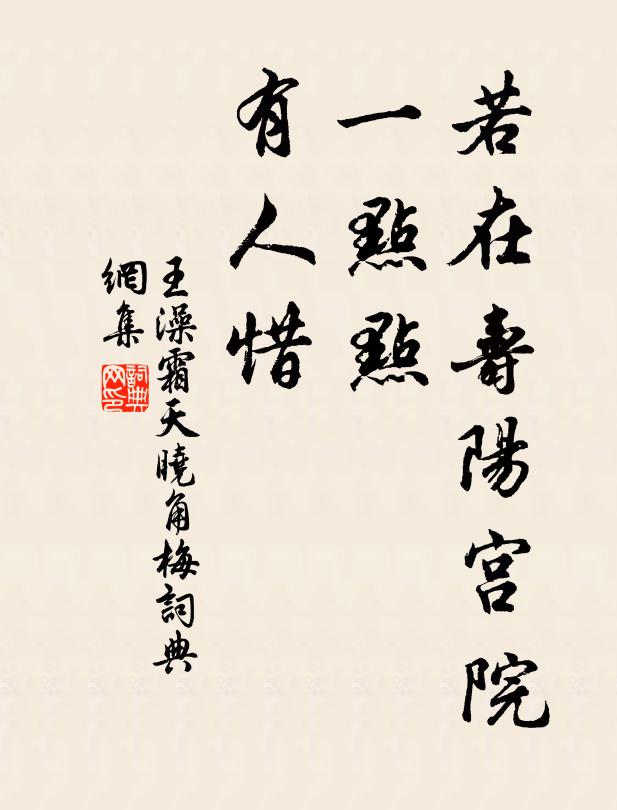 若在壽陽宮院
一點點
有人惜
王澡霜天曉角梅詞典
網集
詞典
网印